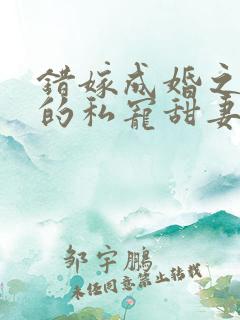 错嫁成婚之
的私宠甜妻
邹宇鹏
未经同意禁止转载